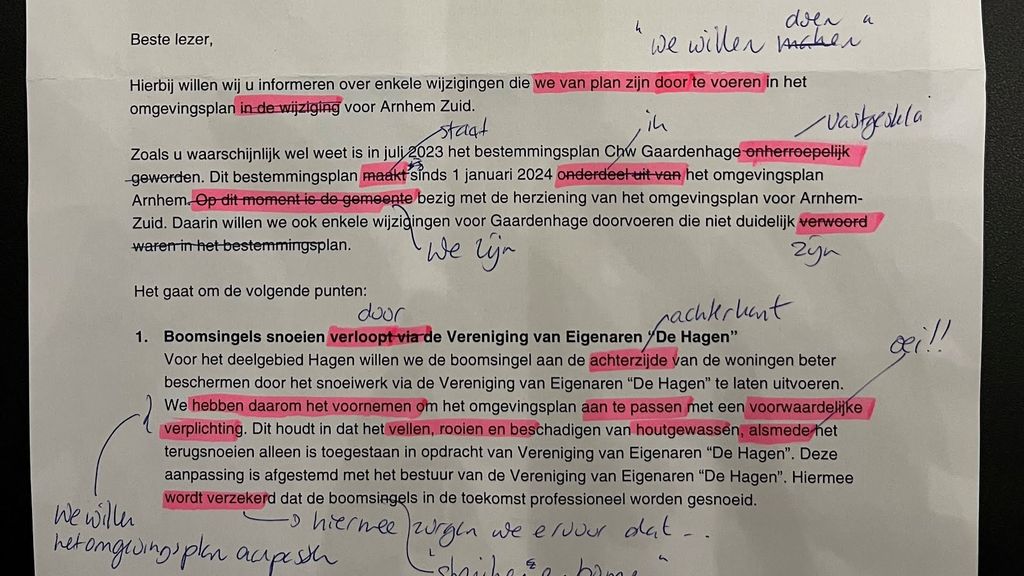 "we willen maken doen"
Beste lezer,
Hierbij willen wij u informeren over enkele wijzigingen die we van plan zijn door te voeren in het
omgevingsplan in de wijziging voor Arnhem Zuid.
staat
in
vastgesteld
Zoals u waarschijnlijk wel weet is in juli 2023 het bestemmingsplan Chw Gaardenhage onherroepelijk
geworden. Dit bestemmingsplan maakt sinds 1 januari 2024 onderdeel uit van het omgevingsplan
Arnhem. Op dit moment is de gemeente bezig met de herziening van het omgevingsplan voor Arnhem-
Zuid. Daarin willen we ook enkele wijzigingen voor Gaardenhage doorvoeren die niet duidelijk verwoord
waren in het bestemmingsplan.
We zijn
zijn
Het gaat om de volgende punten:
door
achterkant
1. Boomsingels snoeien verloopt via de Vereniging van Eigenaren "De Hagen"
oei!!
Voor het deelgebied Hagen willen we de boomsingel aan de achterzijde van de woningen beter
beschermen door het snoeiwerk via de Vereniging van Eigenaren "De Hagen" te laten uitvoeren.
We hebben daarom het voornemen om het omgevingsplan aan te passen met een voorwaardelijke
verplichting. Dit houdt in dat het vellen, rooien en beschadigen van houtgewassen, alsmede het
terugsnoeien alleen is toegestaan in opdracht van Vereniging van Eigenaren "De Hagen". Deze
aanpassing is afgestemd met het bestuur van de Vereniging van Eigenaren "De Hagen". Hiermee
wordt verzekerd dat de boomsingels in de toekomst professioneel worden gesnoeid.
We willen
het omgevingsplan aanpassen
hiermee zorgen we ervoor dat...